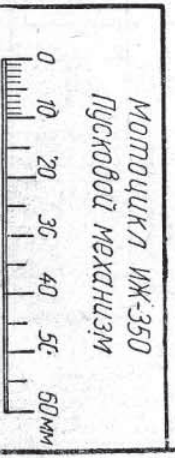 Мотоцикл ИЖ-350
Пусковой механизм
0 10 20 30 40 50 60мм